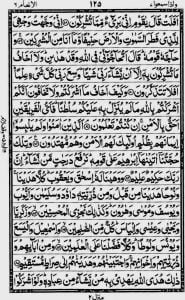 واذا سمعوا ۷ ۱۲۵ الانعام ۶
اَفَلَتْ قَالَ يٰقَوْمِ اِنِّيْ بَرِيْٓءٌ مِّمَّا تُشْرِكُوْنَ ۝ اِنِّيْ وَجَّهْتُ وَجْهِيَ
لِلَّذِيْ فَطَرَ السَّمٰوٰتِ وَالْاَرْضَ حَنِيْفًا وَّمَآ اَنَا مِنَ الْمُشْرِكِيْنَ ۝
وَحَآجَّهٗ قَوْمُهٗ قَالَ اَتُحَآجُّوْٓنِّيْ فِي اللّٰهِ وَقَدْ هَدٰىنِ وَلَآ اَخَافُ
مَا تُشْرِكُوْنَ بِهٖٓ اِلَّآ اَنْ يَّشَآءَ رَبِّيْ شَيْـًٔا وَسِعَ رَبِّيْ كُلَّ شَيْءٍ عِلْمًا
اَفَلَا تَتَذَكَّرُوْنَ ۝ وَكَيْفَ اَخَافُ مَآ اَشْرَكْتُمْ وَلَا تَخَافُوْنَ اَنَّكُمْ
اَشْرَكْتُمْ بِاللّٰهِ مَا لَمْ يُنَزِّلْ بِهٖ عَلَيْكُمْ سُلْطٰنًا فَاَيُّ الْفَرِيْقَيْنِ
اَحَقُّ بِالْاَمْنِ اِنْ كُنْتُمْ تَعْلَمُوْنَ ۝ اَلَّذِيْنَ اٰمَنُوْا وَلَمْ يَلْبِسُوْٓا
اِيْمَانَهُمْ بِظُلْمٍ اُولٰٓئِكَ لَهُمُ الْاَمْنُ وَهُمْ مُّهْتَدُوْنَ ۝ وَتِلْكَ
حُجَّتُنَآ اٰتَيْنٰهَآ اِبْرٰهِيْمَ عَلٰى قَوْمِهٖ نَرْفَعُ دَرَجٰتٍ مَّنْ نَّشَآءُ اِنَّ
رَبَّكَ حَكِيْمٌ عَلِيْمٌ ۝ وَوَهَبْنَا لَهٗٓ اِسْحٰقَ وَيَعْقُوْبَ كُلًّا هَدَيْنَا
وَنُوْحًا هَدَيْنَا مِنْ قَبْلُ وَمِنْ ذُرِّيَّتِهٖ دَاوٗدَ وَسُلَيْمٰنَ وَاَيُّوْبَ
وَيُوْسُفَ وَمُوْسٰى وَهٰرُوْنَ وَكَذٰلِكَ نَجْزِي الْمُحْسِنِيْنَ ۝
وَزَكَرِيَّا وَيَحْيٰى وَعِيْسٰى وَاِلْيَاسَ كُلٌّ مِّنَ الصّٰلِحِيْنَ ۝ وَاِسْمٰعِيْلَ وَالْيَسَعَ
وَيُوْنُسَ وَلُوْطًا وَكُلًّا فَضَّلْنَا عَلَى الْعٰلَمِيْنَ ۝ وَمِنْ اٰبَآئِهِمْ
وَذُرِّيّٰتِهِمْ وَاِخْوَانِهِمْ وَاجْتَبَيْنٰهُمْ وَهَدَيْنٰهُمْ اِلٰى صِرَاطٍ مُّسْتَقِيْمٍ ۝
ذٰلِكَ هُدَى اللّٰهِ يَهْدِيْ بِهٖ مَنْ يَّشَآءُ مِنْ عِبَادِهٖ وَلَوْ اَشْرَكُوْا
منزل ۲